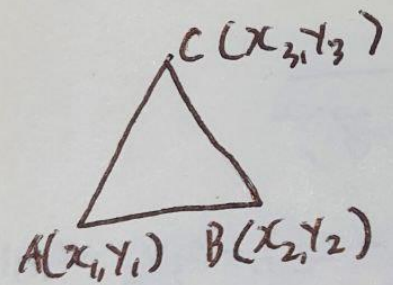 C(x₃,y₃)
A(x₁,y₁) B(x₂,y₂)